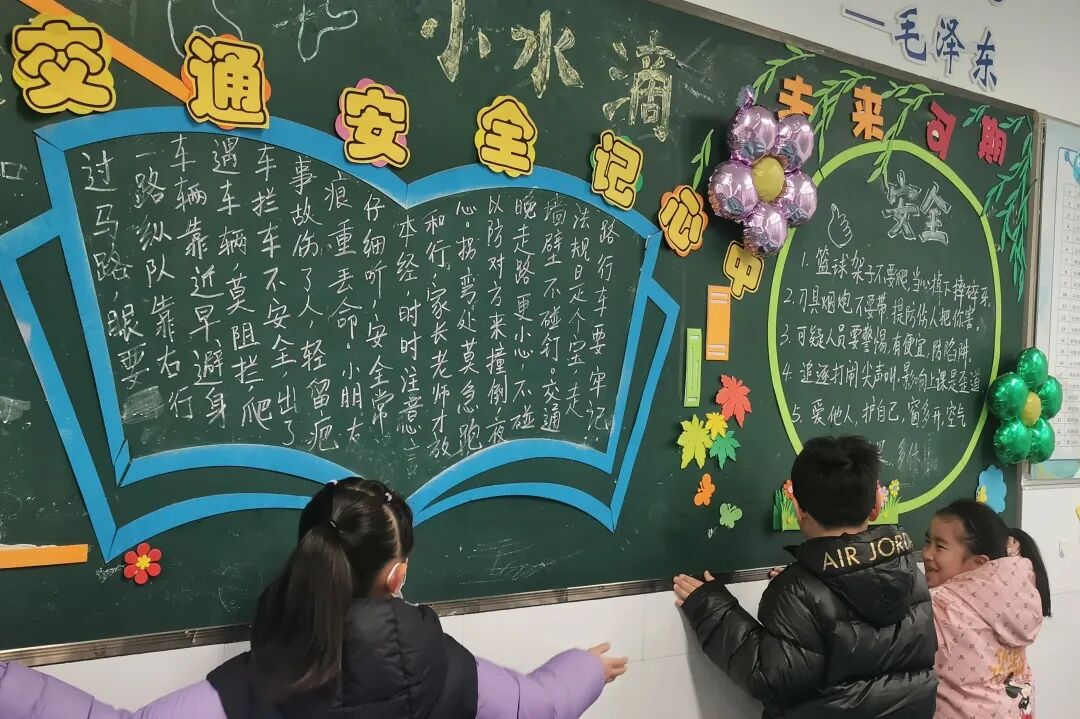 —毛泽东
小水滴
交通安全记心中
过马路,眼要
一路纵队靠右行
车辆靠近早避身
遇车辆,莫阻拦,爬
车拦车不安全,出了
事故伤了人,轻留疤
痕重丢命。小朋友
仔细听,安全常
本经,时时注意言
和行,家长老师才放
心。拐弯处莫急跑
以防对方来撞倒,夜
晚走路更小心,不碰
墙壁不碰钉。交通
法规是个宝,走
路行车要牢记
未来可期
安全
1.篮球架子不要爬,当心掉下摔碎牙.
2.刀具烟炮不要带,提防伤人把你害;
3.可疑人员要警惕,有便宜,防陷阱.
4.追逐打闹尖声叫,影响上课是歪道
5、爱他人,护自己,窗多开,空气
AIR JORD